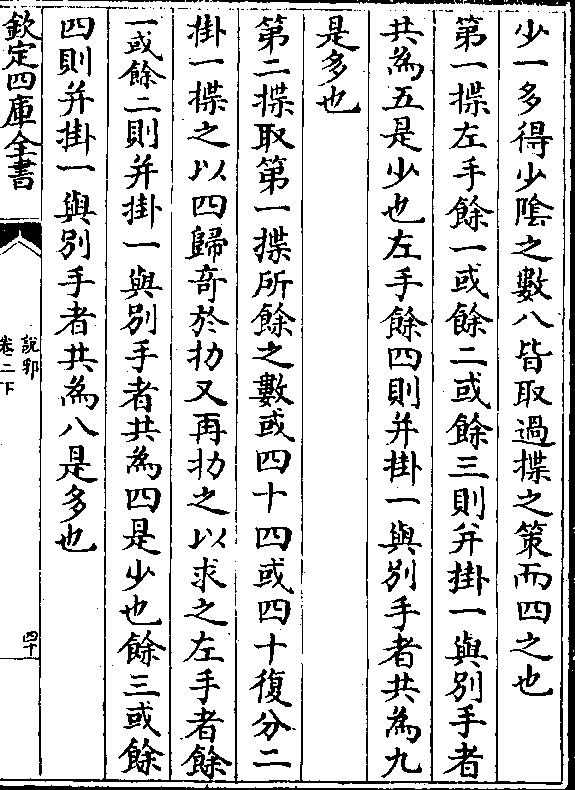 少一多得少陰之數八皆取過揲之策而四之也
第一揲左手餘一或餘二或餘三則并掛一與别手者
共為五是少也左手餘四則并掛一與别手者共為九
是多也
第二揲取第一揲所餘之數或四十四或四十復分二
掛一揲之以四歸奇於扐又再扐之以求之左手者餘
一或餘二則并掛一與别手者共為四是少也餘三或餘
四則并掛一與别手者共為八是多也
欽定四庫全書
說郛
卷二下
四十